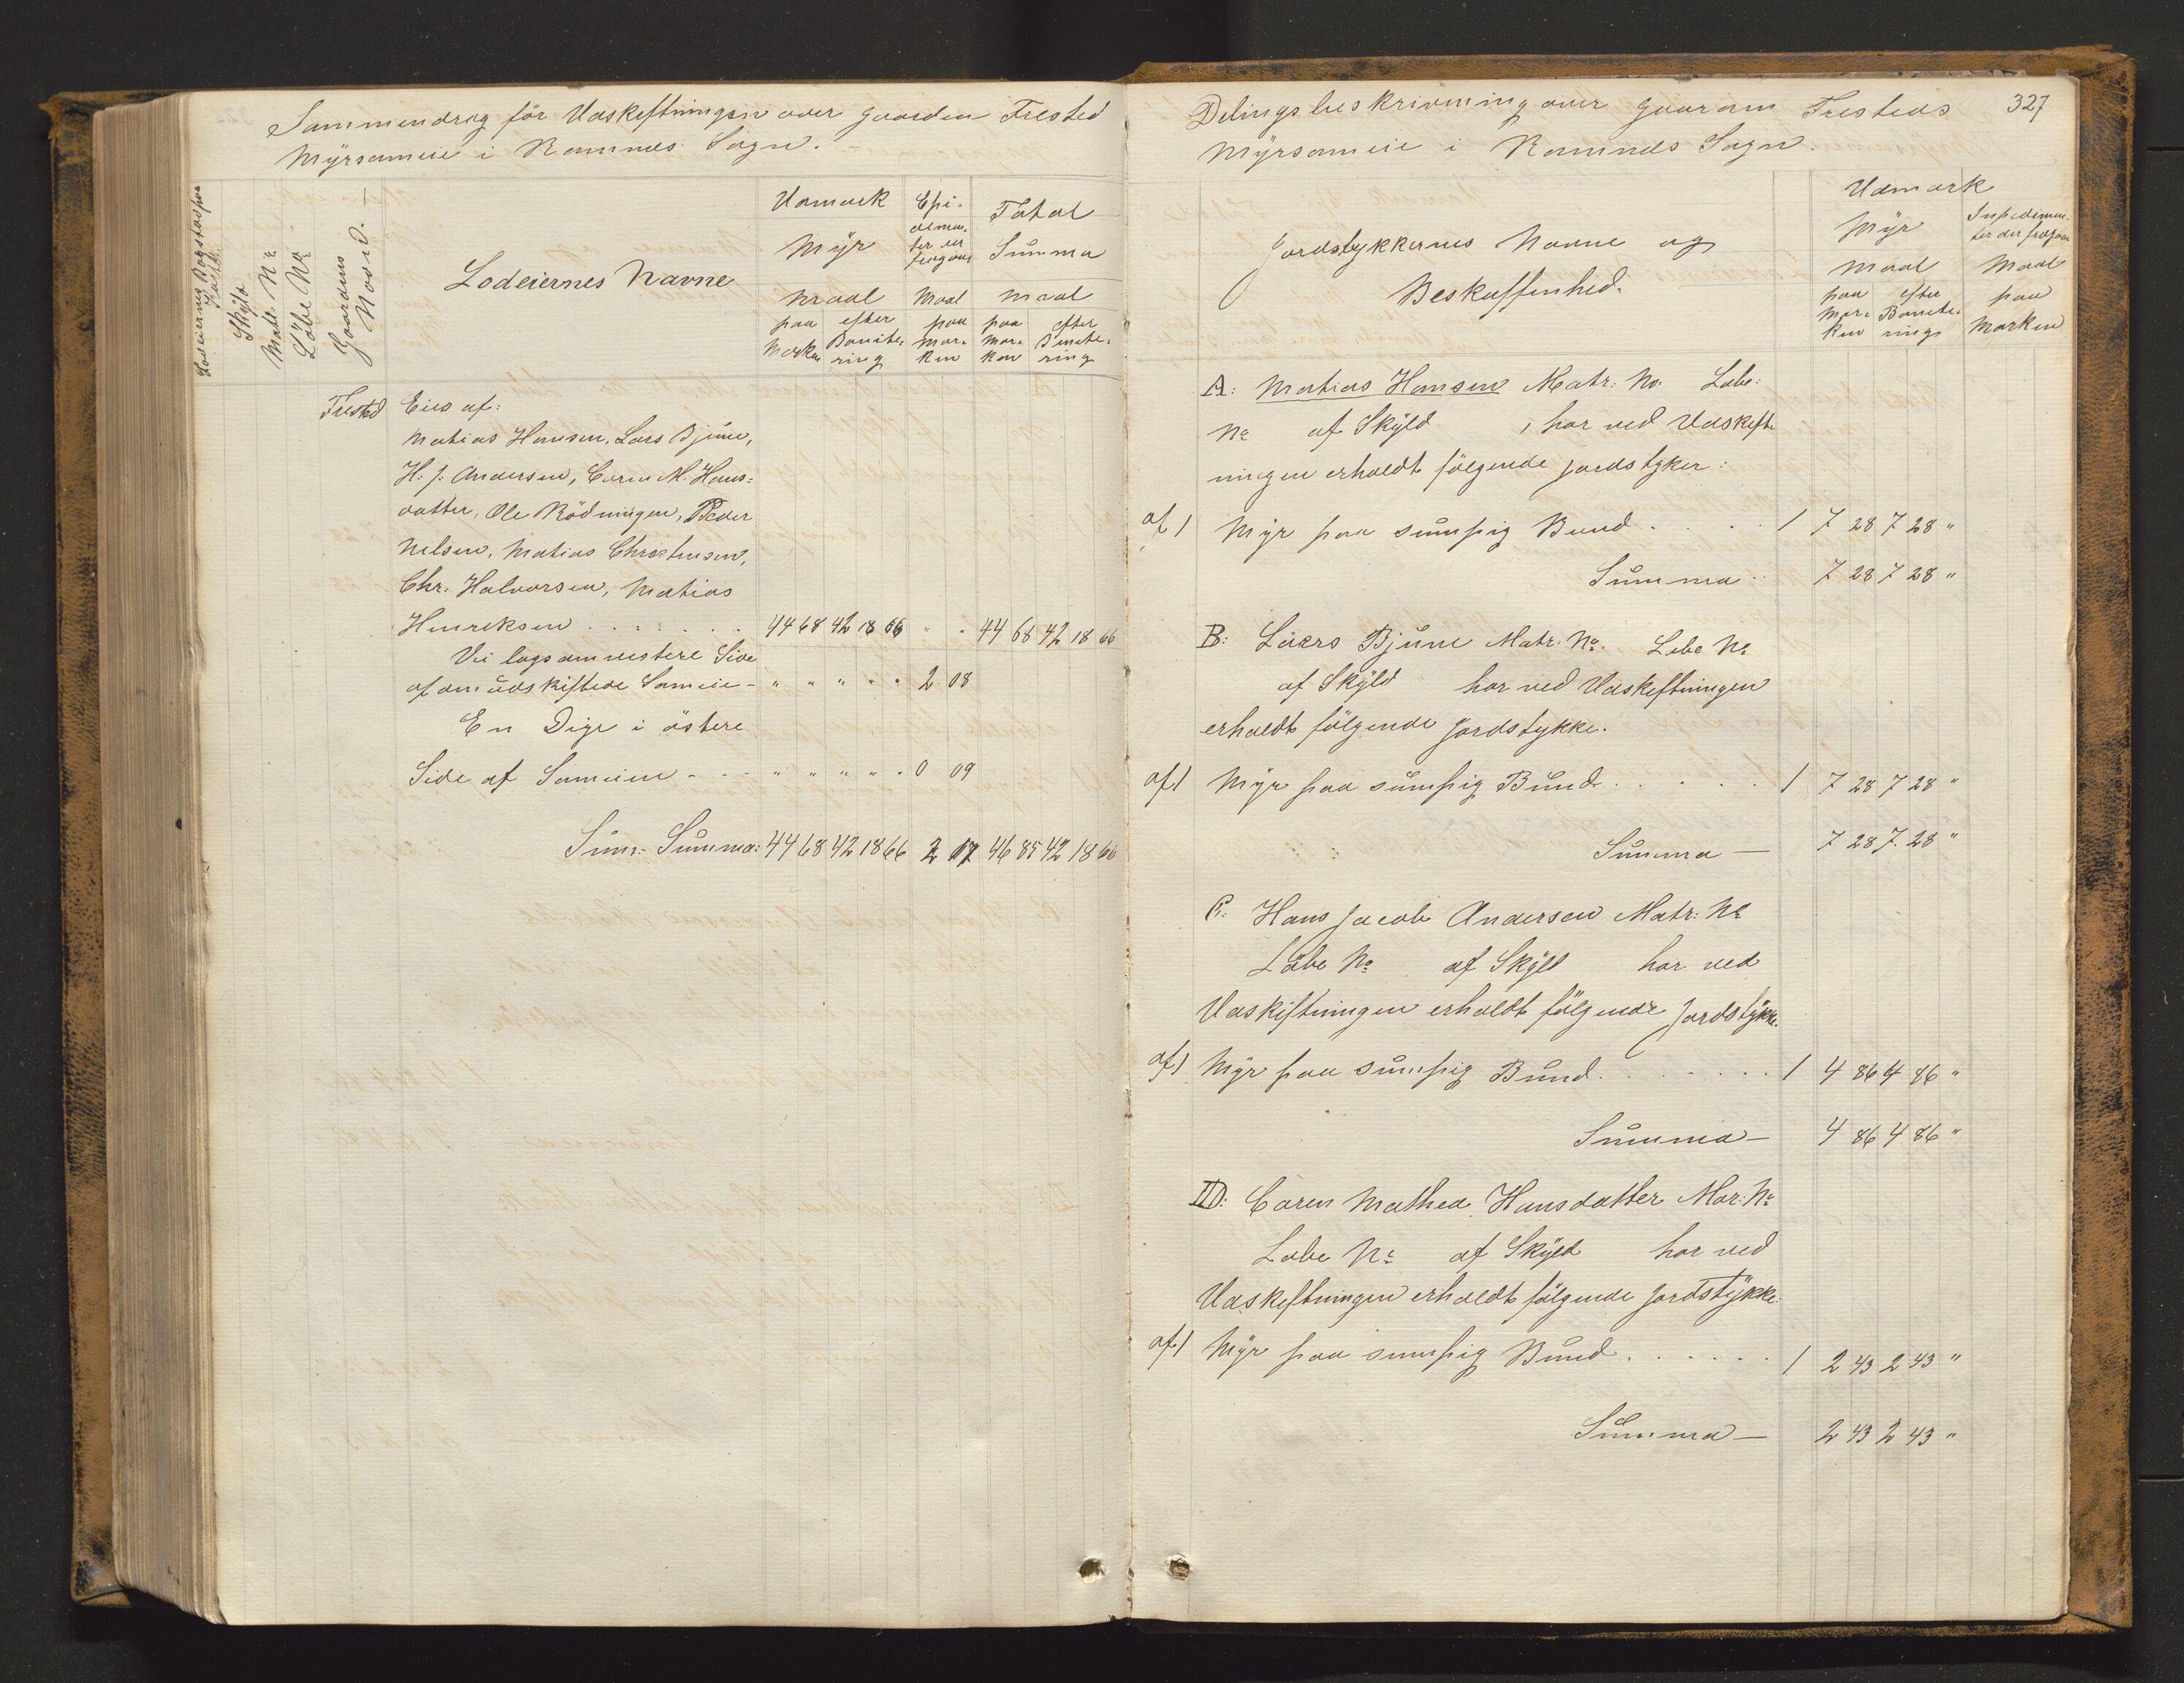 Sammendrag för Udskiftningen over Gaarden Frested
Myrsameie i Ramnæs Sogn.
Lodeiernes Bogstavfor
Skyld
Matr. No
Löbe No
Gaardens
Navn.
Lodeiernes Navne
Udmark
Myr
Maal
paa Marken
efter Bonitering
Epi-
demen-
ter der
fragaar
Maal
paa Mar-
ken
Total
Summa
Maal
paa Mar-
ken
efter Bonite-
ring
Frested Eies af:
Matias Hansen, Lars Bjune,
H. J. Andersen, Caren M. Hans-
datter, Ole Rödningen, Peder
Nilsen, Matias Christensen,
Chr. Halvorsen, Matias
Henreksen . . . . . . 44 68 42 18 66 " " 44 68 42 18 66
Vei langsamvestere Side
af om udskiftede Sameie - " " " " " 2 08
En Dige i östere
Side af Sameien - - - " " " " " 0 09
Sum- Summa: 44 68 42 18 66 2 17 46 85 42 18 66
Delingsbeskrivning over Gaarden Fresteds
327
Myrsameie i Ramnes Sogn.
Jordstykkernes Navne og
Beskaffenhed.
Udmark
Myr
Maal
paa
Mar-
ken
efter
Bonite-
ring
Inpedimen-
ter der fragaar
Maal
paa
Marken
A: Matias Hansen Matr: No. Labe:
No af Skyld , har ved Udskift-
ningen erholdt fölgende Jordstyker:
af 1 Myr paa sumpig Bund . . . . 1 7 28 7 28 "
Summa . . 7 28 7 28 "
B: Laers Bjune Matr: No. Lebe No
af Skyld har ved Udskiftningen
erholdt fölgende Jordstykke.
af 1 Myr paa sumpig Bund . . . . . 1 7 28 7 28 "
Summa — 7 28 7. 28 "
C: Hans Jacob Andersen Matr: No
Löbe No af Skyld har ved
Udskiftningen erholdt fölgende Jordstykke.
af 1 Myr paa sumpig Bund . . . . . . . 1 4 86 4 86 "
Summa — 4 86 4 86 "
D: Caren Mathea Hansdatter Mar: No
Labe No af Skyld har ved
Udskiftningen erholdt fölgende Jordstykke.
af 1 Myr paa sumpig Bund . . . . . . 1 2 43 2 43 "
Summa — 2 43 2 43 "